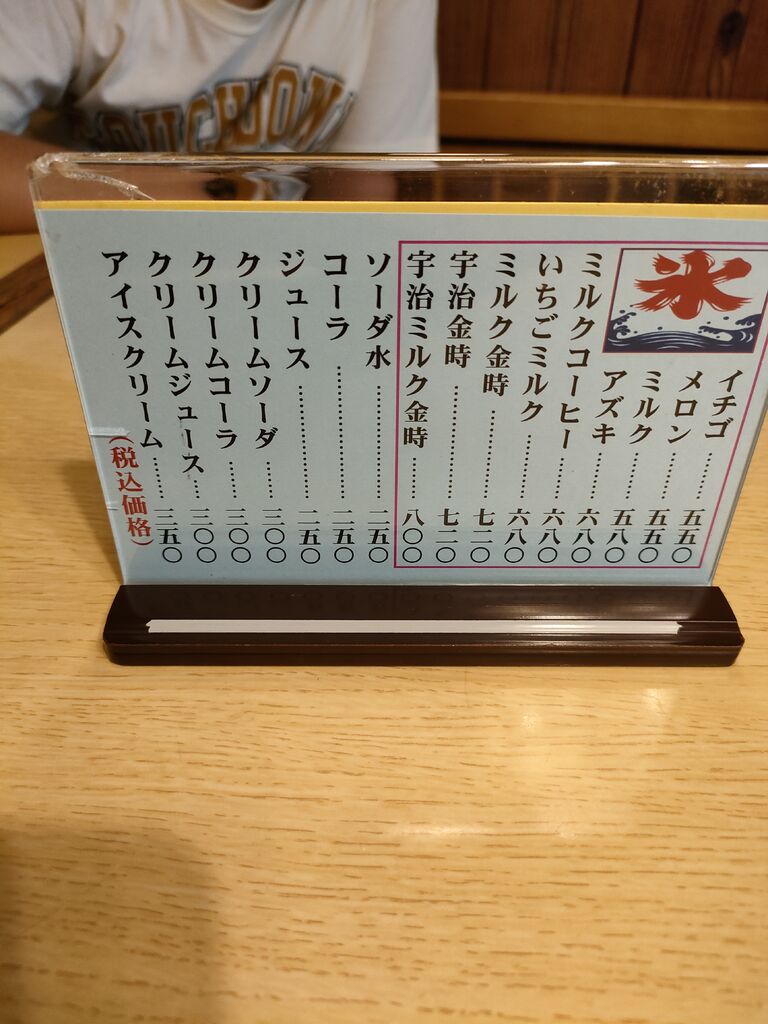 氷
イチゴ……五五〇
メロン……五五〇
ミルク……五八〇
アズキ……六八〇
ミルクコーヒー……六八〇
いちごミルク……六八〇
ミルク金時……七二〇
宇治金時……七二〇
宇治ミルク金時……八〇〇
ソーダ水……二五〇
コーラ……二五〇
ジュース……二五〇
クリームソーダ……三〇〇
クリームコーラ……三〇〇
クリームジュース……三〇〇
アイスクリーム……二五〇
(税込価格)